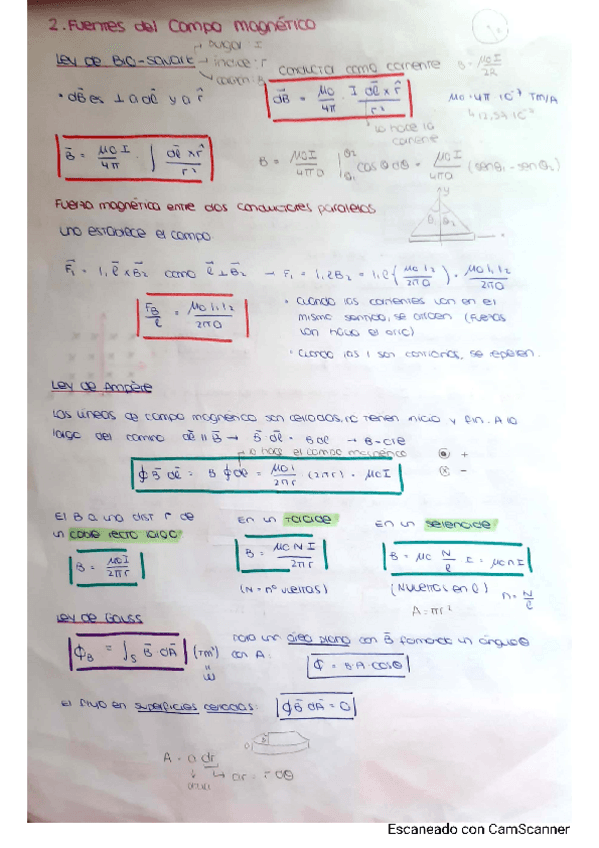 2. Fuentes del campo magnético
pulgar: I
Ley de Bio-Savart índice: r conducta como corriente B = μ0I/2R
• dB⃗ es ⊥ a dl⃗ y a r̂ dB⃗ = μ0/4π I dl⃗ × r̂ / r² μ0 = 4π 10⁻⁷ Tm/A
↳ 12,57·10⁻⁷
lo hace la corriente
B⃗ = μ0 I/4π · ∫ dl⃗ × r̂ / r² B = μ0I/4πa |θ1 θ2 cos θ dθ = μ0I/4πa (senθ1 - senθ2)
Fuerza magnético entre dos conductores paralelos
y
θ1 θ2
uno establece el campo
F⃗1 = I1 l⃗ × B⃗2 como l⃗ ⊥ B⃗2 → F1 = I1 l B2 = I1 l (μ0 I2/2πa) = μ0 I1 I2/2πa
FB/l = μ0 I1 I2/2πa
• Cuando las corrientes van en el
mismo sentido, se atraen (fuerzas
van hacia el otro)
• Cuando las I son contrarias, se repelen.
Ley de Ampère
Las líneas de campo magnético son cerradas, no tienen inicio y fin. A lo
largo del camino dl⃗ ∥ B⃗ → B⃗ dl⃗ = B dl → B = cte
lo hace el campo magnético
⊙ +
⊗ -
∮ B⃗ dl⃗ = B ∮ dl = μ0 I/2πr (2πr) = μ0 I
El B a una dist r de
un cable recto largo:
B = μ0I/2πr
En un toroide
B = μ0 N I/2πr
(N = nº vueltas)
En un selenoide
B = μ0 N/l I = μ0 n I
(N vueltas en l) n = N/l
A = πr²
Ley de Gauss
ΦB = ∫s B⃗ · dA⃗ (Tm²)
para un área plana con B⃗ formando un ángulo θ
con A: Φ = B·A·cosθ
El flujo en superficies cerradas: ∮ B⃗ dA⃗ = 0
A = a dr
dr = r dθ
Escaneado con CamScanner